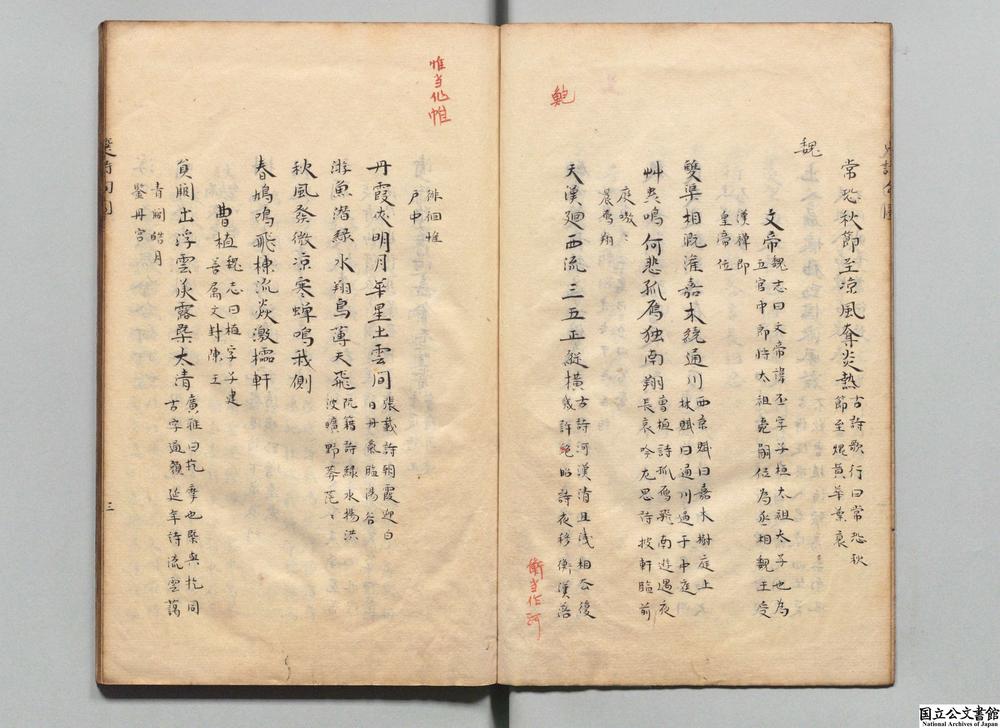 常恐秋節至涼風奪炎熱
古詩歌行曰常恐秋
節至焜黃華葉衰
魏
文帝
魏志曰文帝諱丕字子桓太祖太子也為
五官中郎將太祖薨嗣位為丞相魏王受
漢禅即
皇帝位
雙渠相溉灌嘉木繞通川
西京賦曰嘉木樹庭上
林賦曰通川過于中庭
艸虫鳴何悲孤鴈独南翔
曹植詩孤鴈飛南遊過
長哀吟左思詩披軒臨前
庭嗷〻
晨鴈翔
天漢廻西流三五正縱橫
古詩河漢清且浅相去復
幾許鮑昭詩夜移衡漢落
鮑
衡当作河
徘徊帷
戸中
惟当作帷
丹霞夾明月華星出雲間
張載詩朝霞迎白
日丹氣臨陽谷
游魚潜緑水翔鳥薄天飛
阮籍詩緑水揚洪
波曠野莽茫〻
秋風發微凉寒蝉鳴我側
春鳩鳴飛棟流焱激櫺軒
曹植
魏志曰植字子建
善属文封陳王
員闕出浮雲承露槩太清
廣雅曰扢摩也槩與扢同
古字通顔延年詩流雲藹
青闕皓月
鑒丹宮
三
国立公文書館
National Archives of Japan